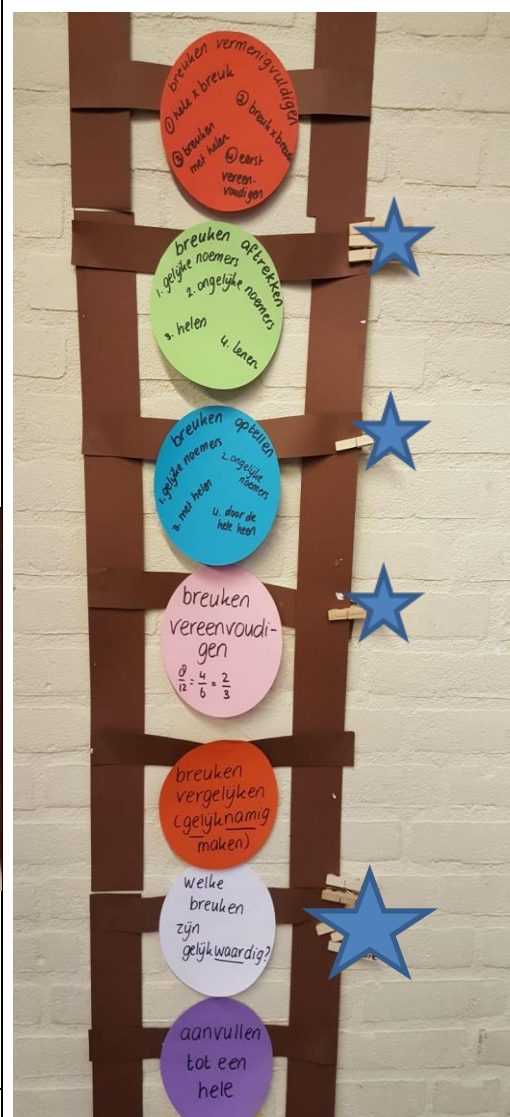 breuken vermenigvuldigen
① hele x breuk
② breuk x breuk
③ breuken
met helen
④ eerst
vereen-
voudigen
breuken aftrekken
1. gelijke noemers
2. ongelijke noemers
3. helen
4. lenen
breuken optellen
1. gelijke noemers
2. ongelijke
noemers
3. met helen
4. door de
hele heen
breuken
vereenvoudi-
gen
8/12 = 4/6 = 2/3
breuken
vergelijken
(gelijknamig
maken)
welke
breuken
zijn
gelijkwaardig?
aanvullen
tot een
hele